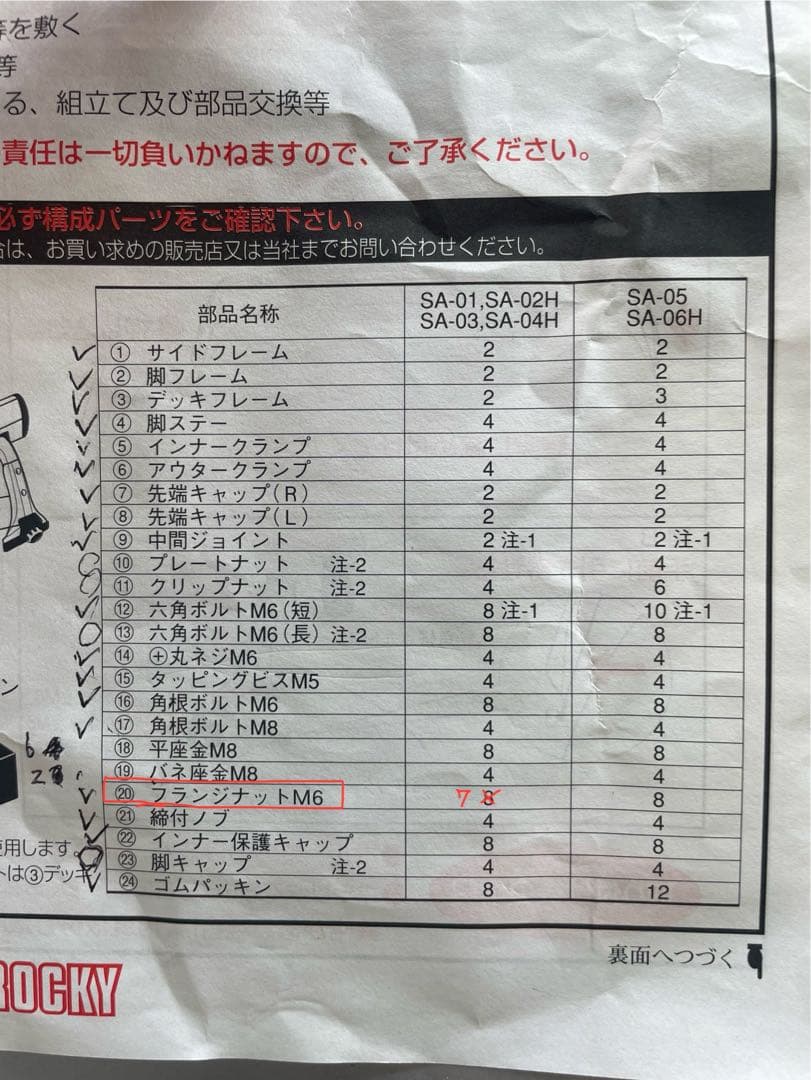 等を敷く
等
る、組立て及び部品交換等
責任は一切負いかねますので、ご了承ください。
必ず構成パーツをご確認下さい。
合は、お買い求めの販売店又は当社までお問い合わせください。
部品名称 SA-01,SA-02H SA-03,SA-04H SA-05 SA-06H
① サイドフレーム 2 2
② 脚フレーム 2 2
③ デッキフレーム 2 3
④ 脚ステー 4 4
⑤ インナークランプ 4 4
⑥ アウタークランプ 4 4
⑦ 先端キャップ(R) 2 2
⑧ 先端キャップ(L) 2 2
⑨ 中間ジョイント 2 注-1 2 注-1
⑩ プレートナット 注-2 4 4
⑪ クリップナット 注-2 4 6
⑫ 六角ボルトM6(短) 8 注-1 10 注-1
⑬ 六角ボルトM6(長) 注-2 8 8
⑭ ⊕丸ネジM6 4 4
⑮ タッピングビスM5 4 4
⑯ 角根ボルトM6 8 8
⑰ 角根ボルトM8 4 4
⑱ 平座金M8 8 8
⑲ バネ座金M8 4 4
⑳ フランジナットM6 7 8 8
㉑ 締付ノブ 4 4
㉒ インナー保護キャップ 8 8
㉓ 脚キャップ 注-2 4 4
㉔ ゴムパッキン 8 12
ン
使用します。
トは③デッキ
裏面へつづく
ROCKY